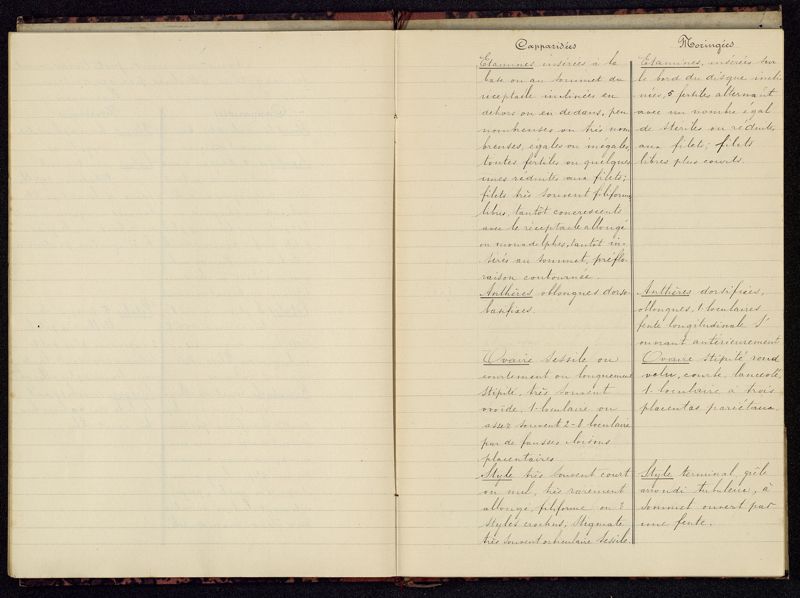 Capparidées
Etamines insérées à la
base ou au sommet du
réceptacle inclinées en
dehors ou en dedans, peu
nombreuses ou très nom
breuses, égales ou inégales,
toutes fertiles ou quelques
unes réduites aux filets;
filets très souvent filiformes
libres, tantôt concrescents
avec le réceptacle allongé
ou monadelphes, tantôt in-
sérés au sommet, préflo-
raison contournée.
Anthères oblongues dorso
basifixes.
Ovaire sessile ou
courtement ou longuement
stipité, très souvent
ovoïde, 1-loculaire ou
assez souvent 2-8 loculaire
par de fausses cloisons
placentaires
Style très souvent court
ou nul, très rarement
allongé, filiforme ou 3
styles crochus, Stigmate
très souvent orbiculaire sessile.
Moringées
Etamines, insérées sur
le bord du disque incli
nées, 5 fertiles alternant
avec un nombre égal
de stériles ou réduites
aux filets; filets
libres plus courts.
Anthères dorsifixées,
oblongues, 1-loculaires
fente longitudinale S'
ouvrant antérieurement
Ovaire stipité, rond
velu, courte, lancéolé,
1 loculaire à trois
placentas pariétaux.
Style terminal, grêle
arrondi tubuleux, à
sommet ouvert par
une fente.